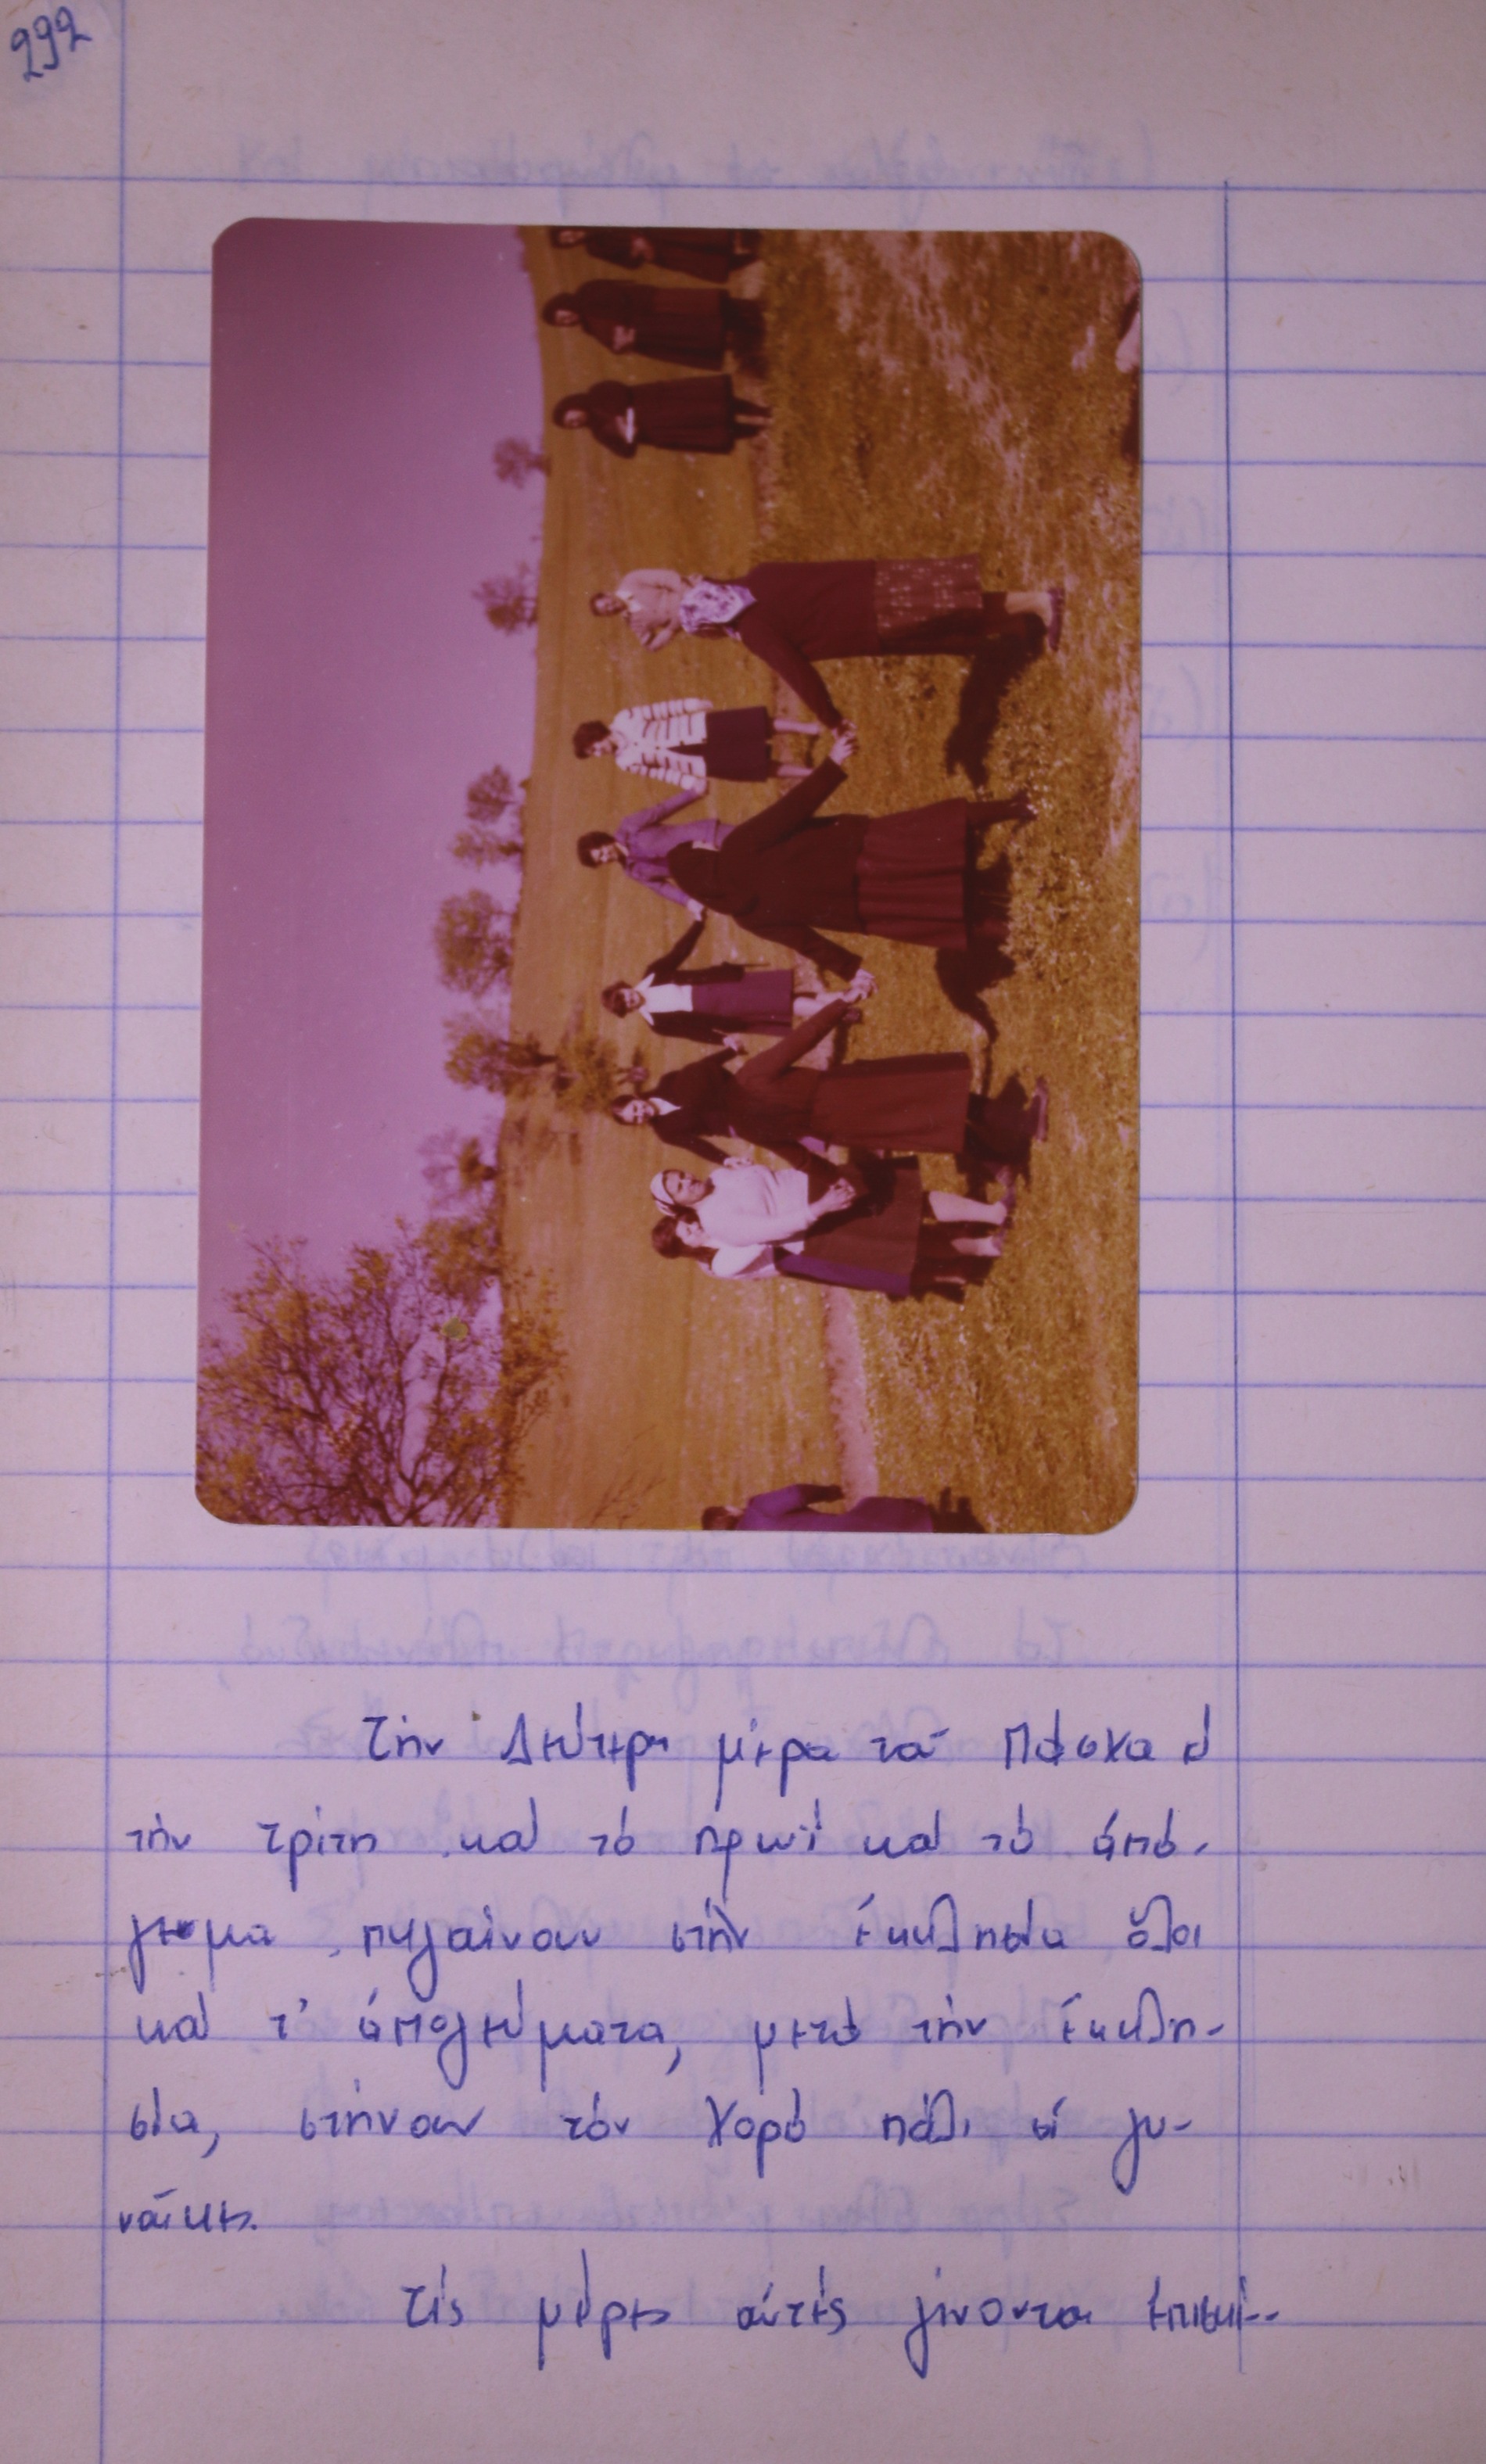 292
Τήν Δεύτερη μέρα τοῦ Πάσχα ἤ
τήν τρίτη καί τό πρωΐ καί τό ἀπό-
γευμα πηγαίνουν στήν ἐκκλησία ὅλοι
καί τ' ἀπογεύματα, μετά τήν ἐκκλη-
σία, στήνουν τόν χορό πάλι οἱ γυ-
ναῖκες.
Τίς μέρες αὐτές γίνονται ἐπισκέ-